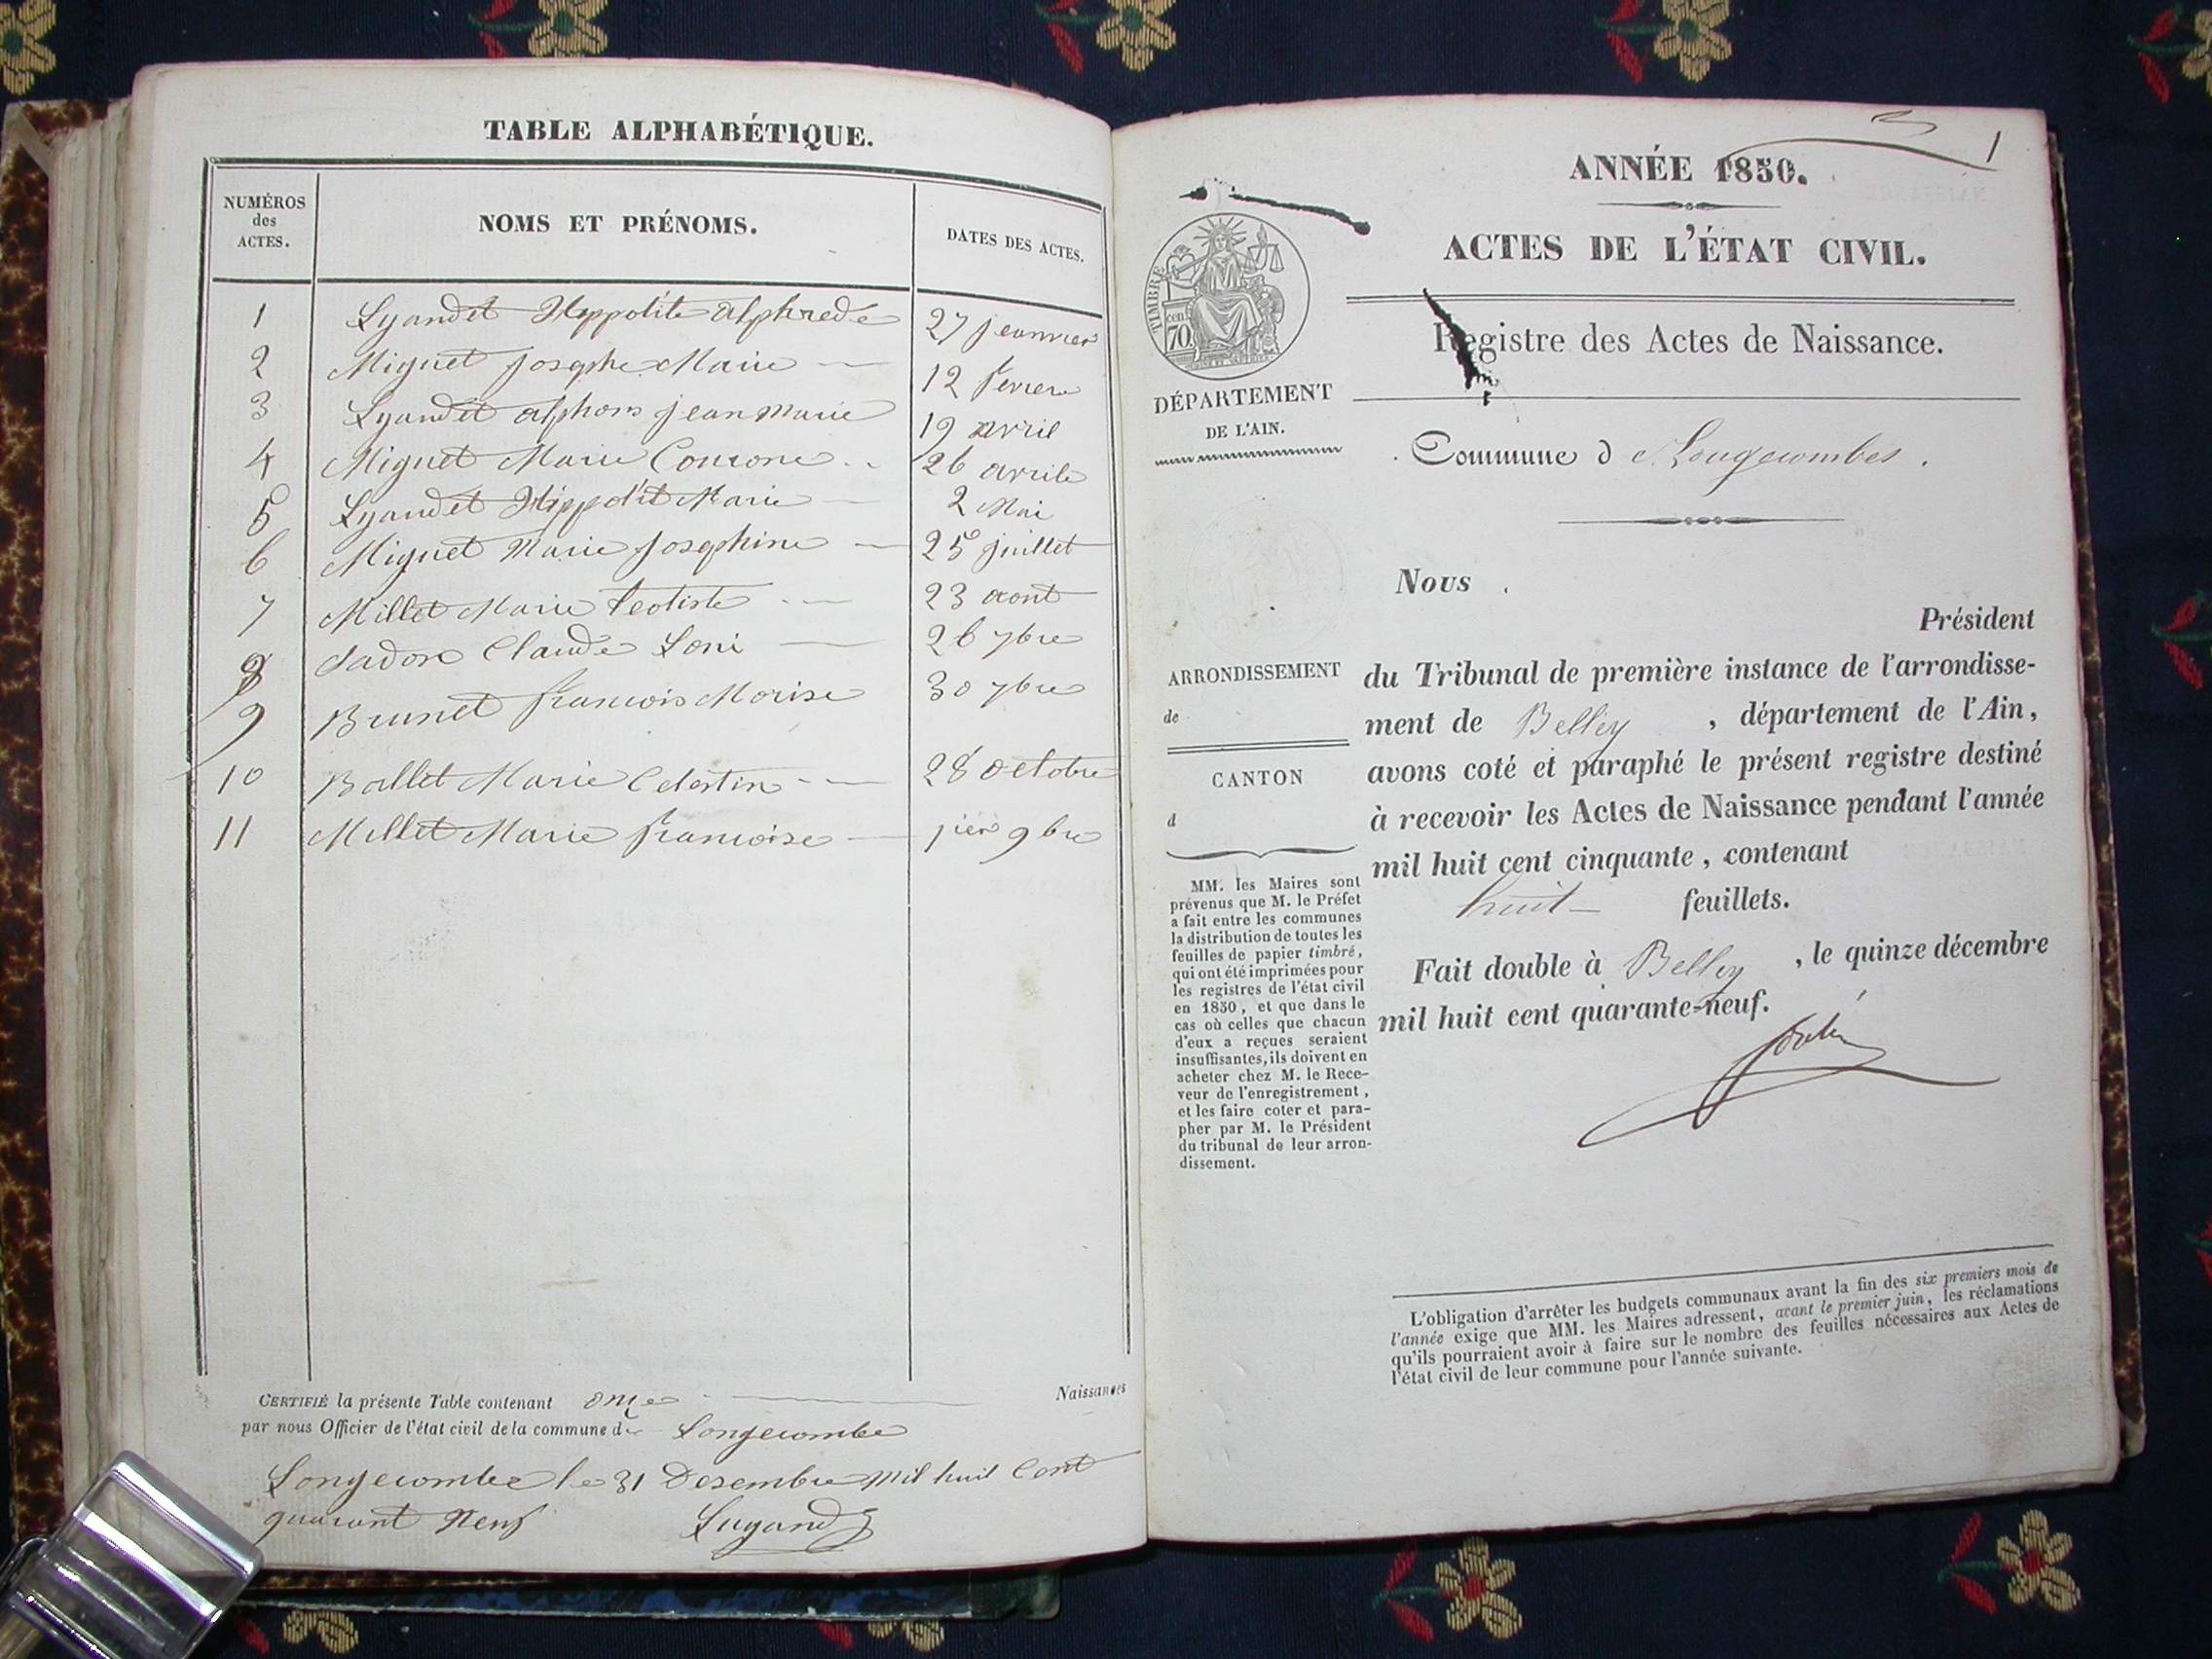 TABLE ALPHABÉTIQUE.
NUMÉROS des ACTES.
NOMS ET PRÉNOMS.
DATES DES ACTES.
1 Lyandet Hippolite alphrede 27 jeanvier
2 Miguet josephe Marie 12 fevrier
3 Lyandet alphons jean marie 19 avril
4 Miguet Marie 26 avrile
5 Lyandet Hippolit Marie 2 Mai
6 Miguet Marie josephine 25 juillet
7 Millet Marie teotiste 23 aout
8 Claude 26 7bre
9 Brunet francois Morise 30 7bre
10 Ballet Marie Celestin 28 octobre
11 Millet Marie francoise 1ier 9bre
CERTIFIÉ la présente Table contenant onze Naissances
par nous Officier de l'état civil de la commune de Longecombe
Longecombe le 31 Desembre mil huit Cent
quarant Neuf
1
ANNÉE 1850.
ACTES DE L'ÉTAT CIVIL.
TIMBRE
cent 70.
Registre des Actes de Naissance.
DÉPARTEMENT
DE L'AIN.
Commune d Longecombes.
Nous
Président
ARRONDISSEMENT
de
du Tribunal de première instance de l'arrondisse-
ment de Belley, département de l'Ain,
avons coté et paraphé le présent registre destiné
à recevoir les Actes de Naissance pendant l'année
mil huit cent cinquante, contenant
huit feuillets.
Fait double à Belley, le quinze décembre
mil huit cent quarante-neuf.
CANTON
d
MM. les Maires sont
prévenus que M. le Préfet
a fait entre les communes
la distribution de toutes les
feuilles de papier timbré,
qui ont été imprimées pour
les registres de l'état civil
en 1850, et que dans le
cas où celles que chacun
d'eux a reçues seraient
insuffisantes, ils doivent en
acheter chez M. le Rece-
veur de l'enregistrement,
et les faire coter et para-
pher par M. le Président
du tribunal de leur arron-
dissement.
L'obligation d'arrêter les budgets communaux avant la fin des six premiers mois de
l'année exige que MM. les Maires adressent, avant le premier juin, les réclamations
qu'ils pourraient avoir à faire sur le nombre des feuilles nécessaires aux Actes de
l'état civil de leur commune pour l'année suivante.